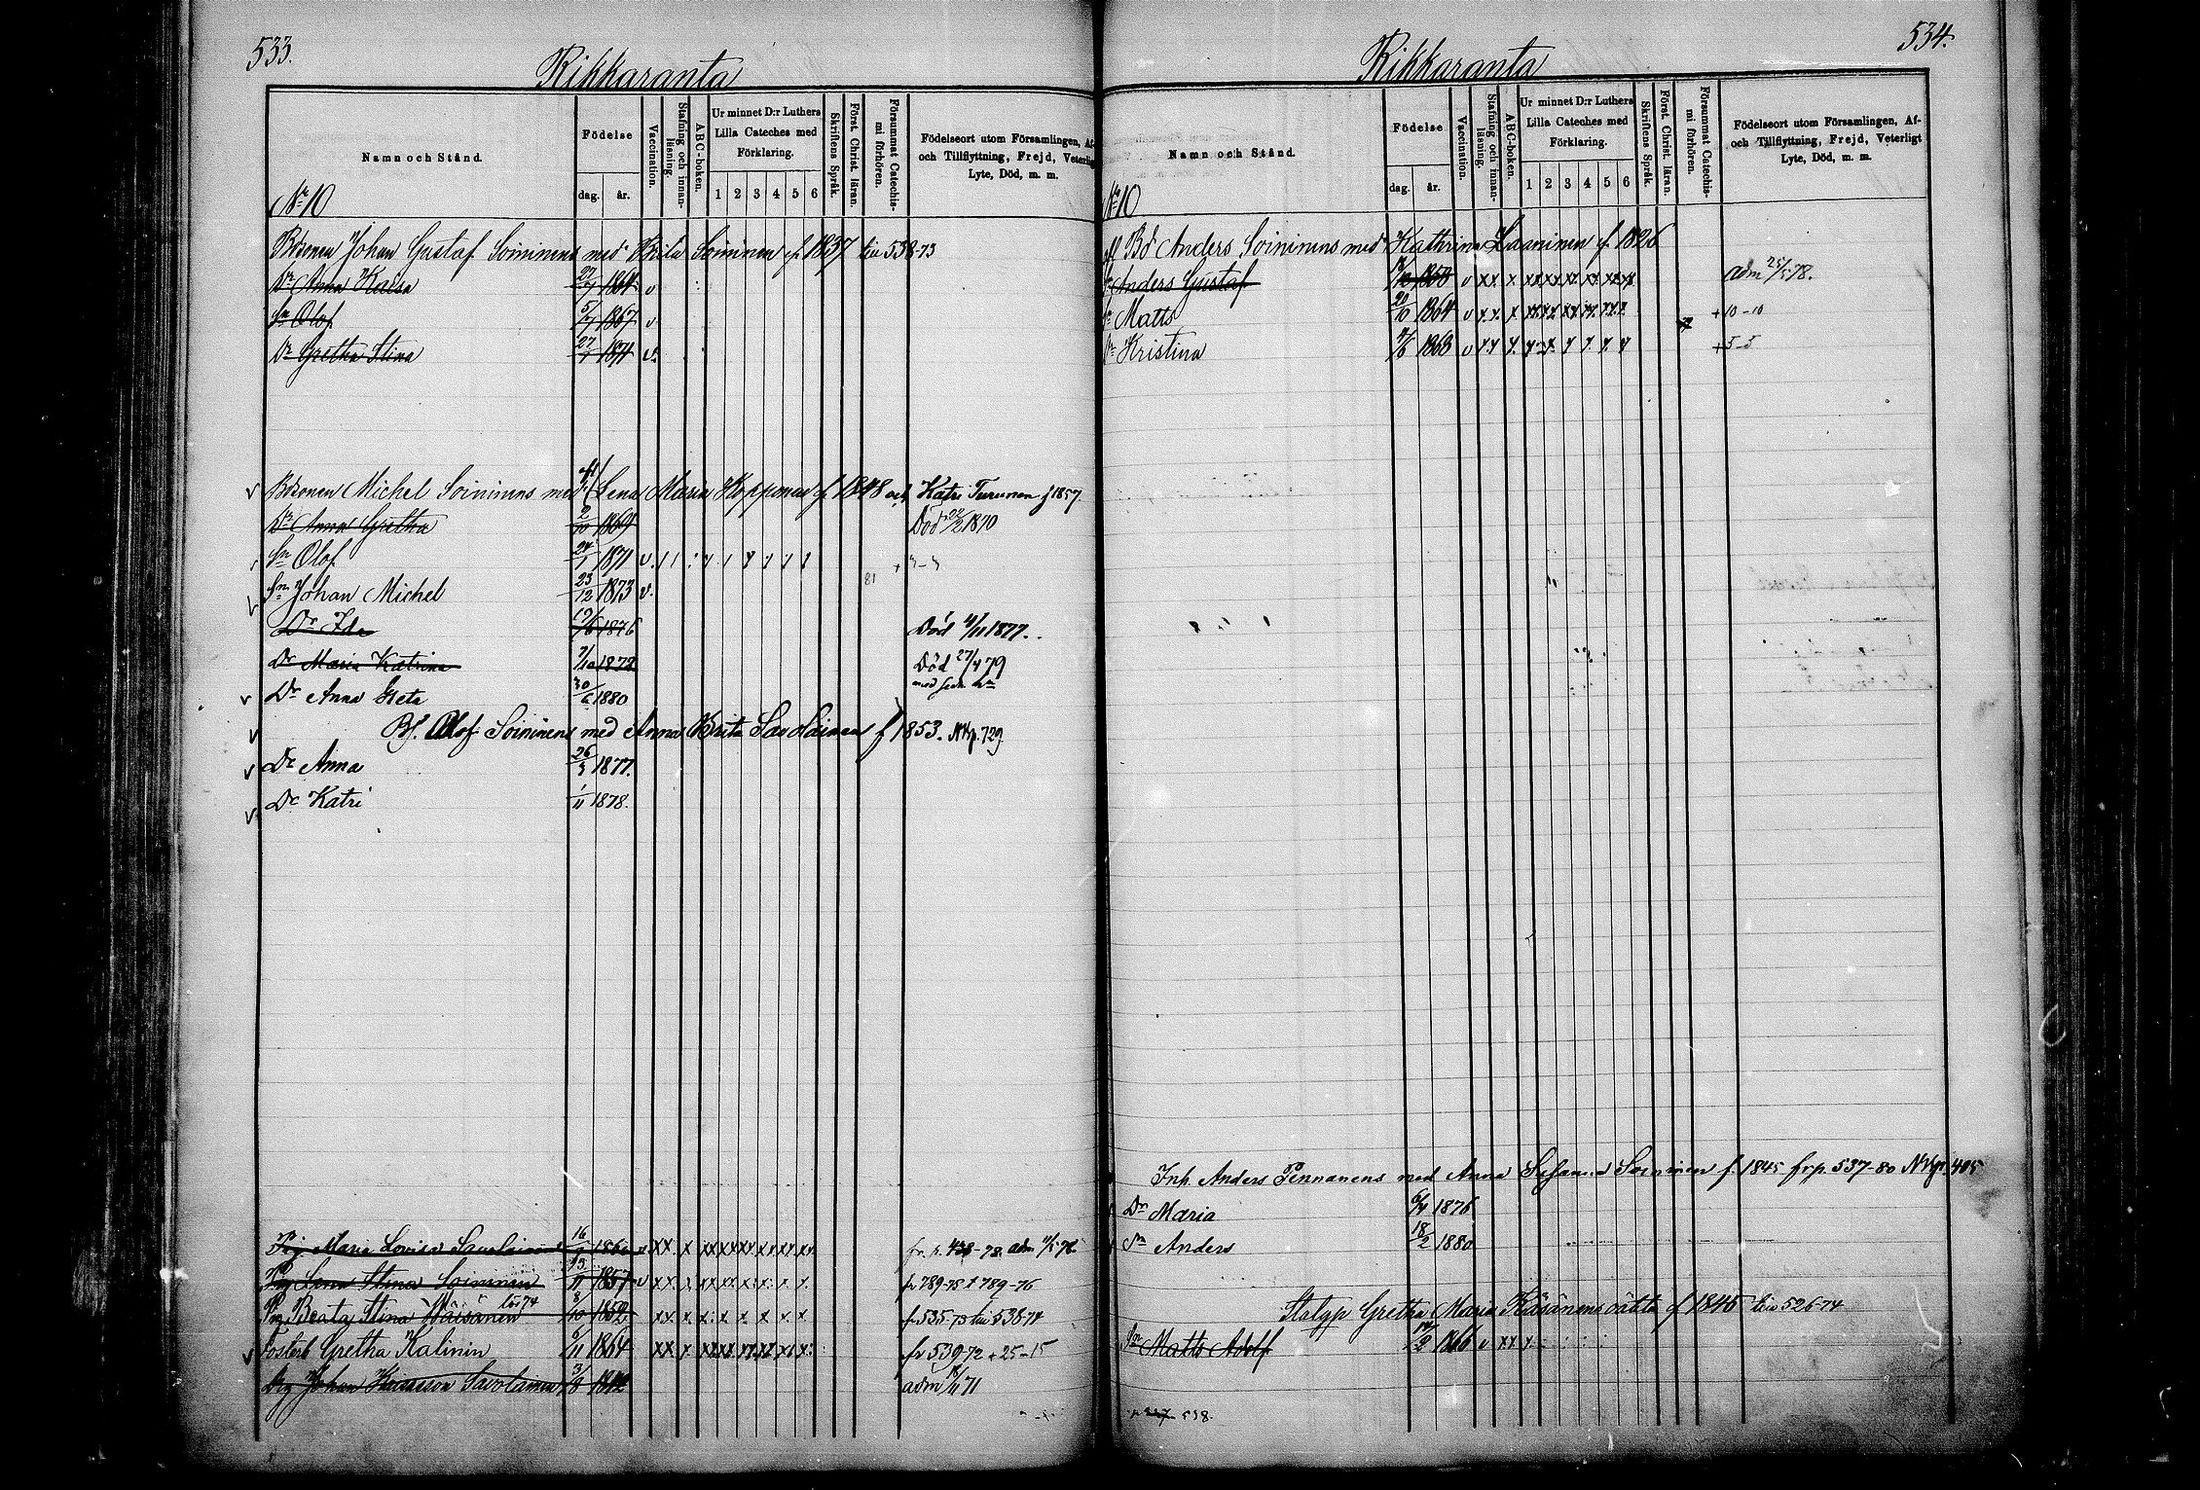 533.
Rikkaranta
Namn och Stånd.
Födelse
dag. år.
Vaccination.
Stafning och innan-läsning.
ABC-boken.
Ur minnet D:r Luthers Lilla Cateches med Förklaring.
1 2 3 4 5 6
Skriftens Språk.
Först. Christ. läran.
Försummat Catechis-mi förhören.
Födelseort utom Församlingen, Af-
och Tillflyttning, Frejd, Veterligt
Lyte, Död, m. m.
No 10
Bdsonen Johan Gustaf Soininens med Brita Soininen f. 1837 till 538-73
Dr Anna Kaisa 27/7 1864 v
Sn Olof 5/7 1867 v
Dr Gretha Stina 27 1871 v.
Bdsonen Michel Soininens med Lena Maria Kopponen f 1848 och Katri Turunen f 1857.
Dr Anna Gretha 2/10 1869 Död 22/2 1870
Sn Olof 24/1 1871 v.
Sn Johan Michel 23/12 1873 v. 81
Dr Ida 1876 Död 4/11 1877.
Dr Maria Katrina 7/10 1878 Död 27/4 79
Dr Anna Greta 30/6 1880
Bf. Olof Soininens med Anna Brita Savolainen f 1853. Nkp. 729
Dr Anna 26/3 1877.
Dr Katri 1/11 1878.
Pig Maria Lovisa Savolainen 16 186 v xx x xx xx xx xx xx fr. p. 438-78. adm
Pig Lena Stina Soininen 11 1857 v xx fr 789-75 t 789-76
Pig Beata Stina Väisänen till 74 8/10 1852 xx x f 535-73 till 536-74
Fosterb Gretha Kalinin 6/11 1864 xx x fr 539-72 + 25-15
Drg Johan Savolainen 3/8 adm 71
534.
Rikkaranta
Namn och Stånd.
Födelse
dag. år.
Vaccination.
Stafning och innan-läsning.
ABC-boken.
Ur minnet D:r Luthers Lilla Cateches med Förklaring.
1 2 3 4 5 6
Skriftens Språk.
Först. Christ. läran.
Försummat Catechis-mi förhören.
Födelseort utom Församlingen, Af-
och Tillflyttning, Frejd, Veterligt
Lyte, Död, m. m.
No 10
afl Bd Anders Soininens med Kathrina Laaninen f. 1826
Sn Anders Gustaf v xx x adm 25/5 78.
Sn Matts 20/10 1864 v x x x + 10-10
Dr Kristina 7/6 1868 v + 5-5
Inh. Anders Pennanens med Anna Susanna Soininen f. 1845 frp. 537-80 Nkp. 405
Dr Maria 6/4 1876
Sn Anders 18/2 1880
Statyp Gretha Maria Käsänens oäkta f 1845 till 526-74
Sn Matts Adolf 1866 v xx x
538.